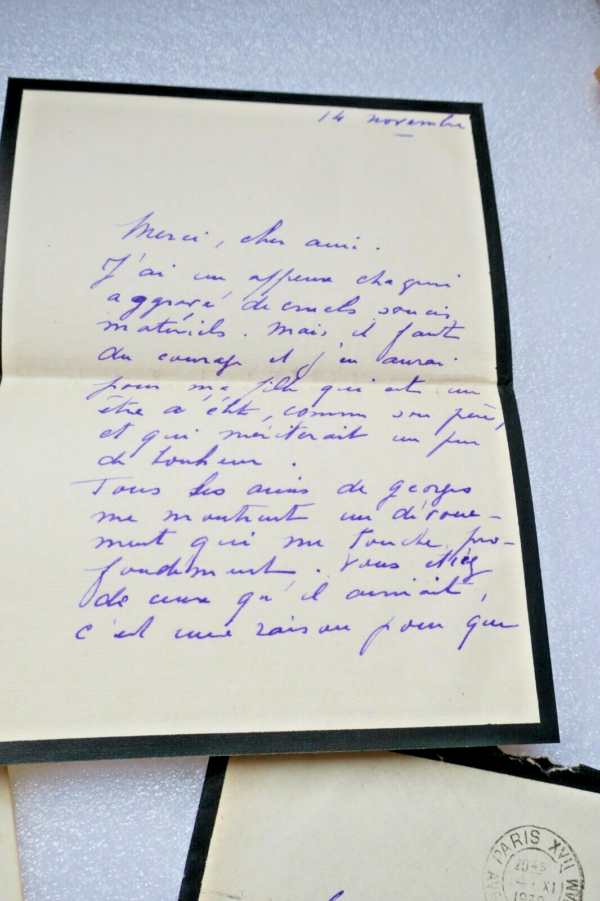 14 novembre
Merci, cher ami.
J'ai un affreux chagrin
aggravé de cruels soucis
matériels. Mais il faut
du courage et j'en aurai
pour ma fille qui est un
être d'élite, comme son père,
et qui mériterait un peu
de bonheur.
Tous les amis de Georges
me montrent un dévoue-
ment qui me touche pro-
fondément. Vous étiez
de ceux qu'il aimait,
c'est une raison pour que
PARIS XVII
2045
XI